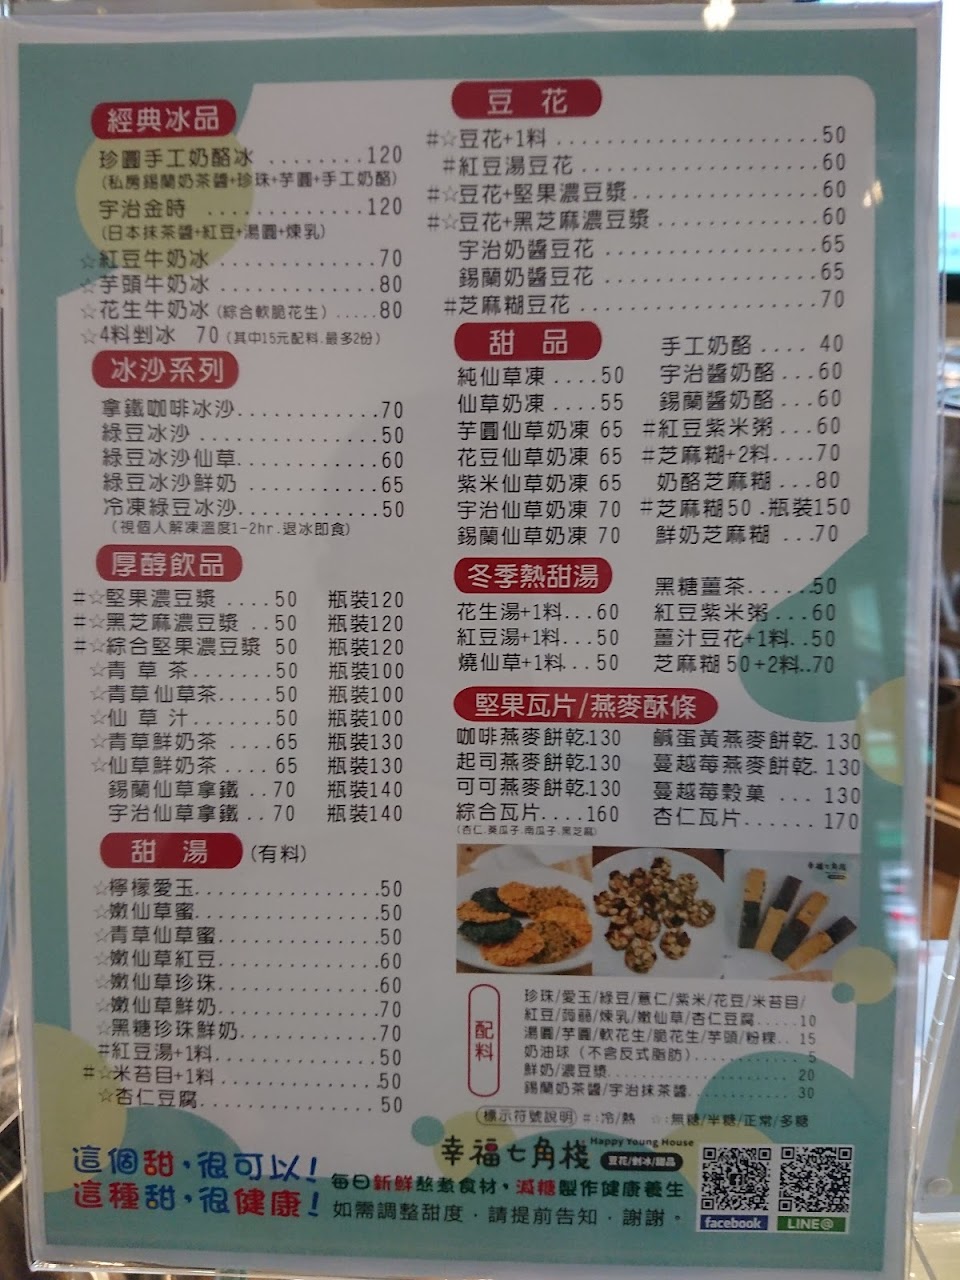 經典冰品
珍圓手工奶酪冰 ........120
(私房錫蘭奶茶醬+珍珠+芋圓+手工奶酪)
宇治金時 ..............120
(日本抹茶醬+紅豆+湯圓+煉乳)
☆紅豆牛奶冰 ..............70
☆芋頭牛奶冰 ..............80
☆花生牛奶冰(綜合軟脆花生) .....80
☆4料剉冰 70 (其中15元配料.最多2份)
冰沙系列
拿鐵咖啡冰沙............70
綠豆冰沙 ................50
綠豆冰沙仙草............60
綠豆冰沙鮮奶 ............65
冷凍綠豆冰沙............50
(視個人解凍溫度1-2hr.退冰即食)
厚醇飲品
#☆堅果濃豆漿 ....50 瓶裝120
#☆黑芝麻濃豆漿 ..50 瓶裝120
#☆綜合堅果濃豆漿 50 瓶裝120
☆青草茶.......50 瓶裝100
☆青草仙草茶.....50 瓶裝100
☆仙草汁.......50 瓶裝100
☆青草鮮奶茶 ....65 瓶裝130
☆仙草鮮奶茶 ....65 瓶裝130
錫蘭仙草拿鐵 ..70 瓶裝140
宇治仙草拿鐵 ..70 瓶裝140
甜湯 (有料)
☆檸檬愛玉................50
☆嫩仙草蜜................50
☆青草仙草蜜..............50
☆嫩仙草紅豆..............60
☆嫩仙草珍珠..............60
☆嫩仙草鮮奶..............70
☆黑糖珍珠鮮奶............70
#紅豆湯+1料..............50
#☆米苔目+1料..............50
☆杏仁豆腐................50
豆花
#☆豆花+1料 ......................50
#紅豆湯豆花 ....................60
#☆豆花+堅果濃豆漿................60
#☆豆花+黑芝麻濃豆漿 ..............60
宇治奶醬豆花 ..................65
錫蘭奶醬豆花 ..................65
#芝麻糊豆花 ....................70
甜品
純仙草凍 ....50
仙草奶凍 ....55
芋圓仙草奶凍 65
花豆仙草奶凍 65
紫米仙草奶凍 65
宇治仙草奶凍 70
錫蘭仙草奶凍 70
手工奶酪 .... 40
宇治醬奶酪 ...60
錫蘭醬奶酪 ...60
#紅豆紫米粥 ...60
#芝麻糊+2料....70
奶酪芝麻糊 ...80
#芝麻糊50 .瓶裝150
鮮奶芝麻糊 ...70
冬季熱甜湯
花生湯+1料...60
紅豆湯+1料...50
燒仙草+1料...50
黑糖薑茶......50
紅豆紫米粥...60
薑汁豆花+1料..50
芝麻糊50+2料..70
堅果瓦片/燕麥酥條
咖啡燕麥餅乾.130
起司燕麥餅乾.130
可可燕麥餅乾.130
綜合瓦片....160
(杏仁.葵瓜子.南瓜子.黑芝麻)
鹹蛋黃燕麥餅乾. 130
蔓越莓燕麥餅乾. 130
蔓越莓穀菓 ... 130
杏仁瓦片...... 170
幸福七角棧
配料
珍珠/愛玉/綠豆/薏仁/紫米/花豆/米苔目/
紅豆/蒟蒻/煉乳/嫩仙草/杏仁豆腐.....10
湯圓/芋圓/軟花生/脆花生/芋頭/粉粿.. 15
奶油球 (不含反式脂肪) ............. 5
鮮奶/濃豆漿........................ 20
錫蘭奶茶醬/宇治抹茶醬.............. 30
標示符號說明 #:冷/熱 ☆:無糖/半糖/正常/多糖
幸福七角棧 Happy Young House
豆花/剉冰/甜品
這個甜，很可以！
這種甜，很健康！
每日新鮮熬煮食材，減糖製作健康養生
如需調整甜度，請提前告知，謝謝。
facebook
LINE@